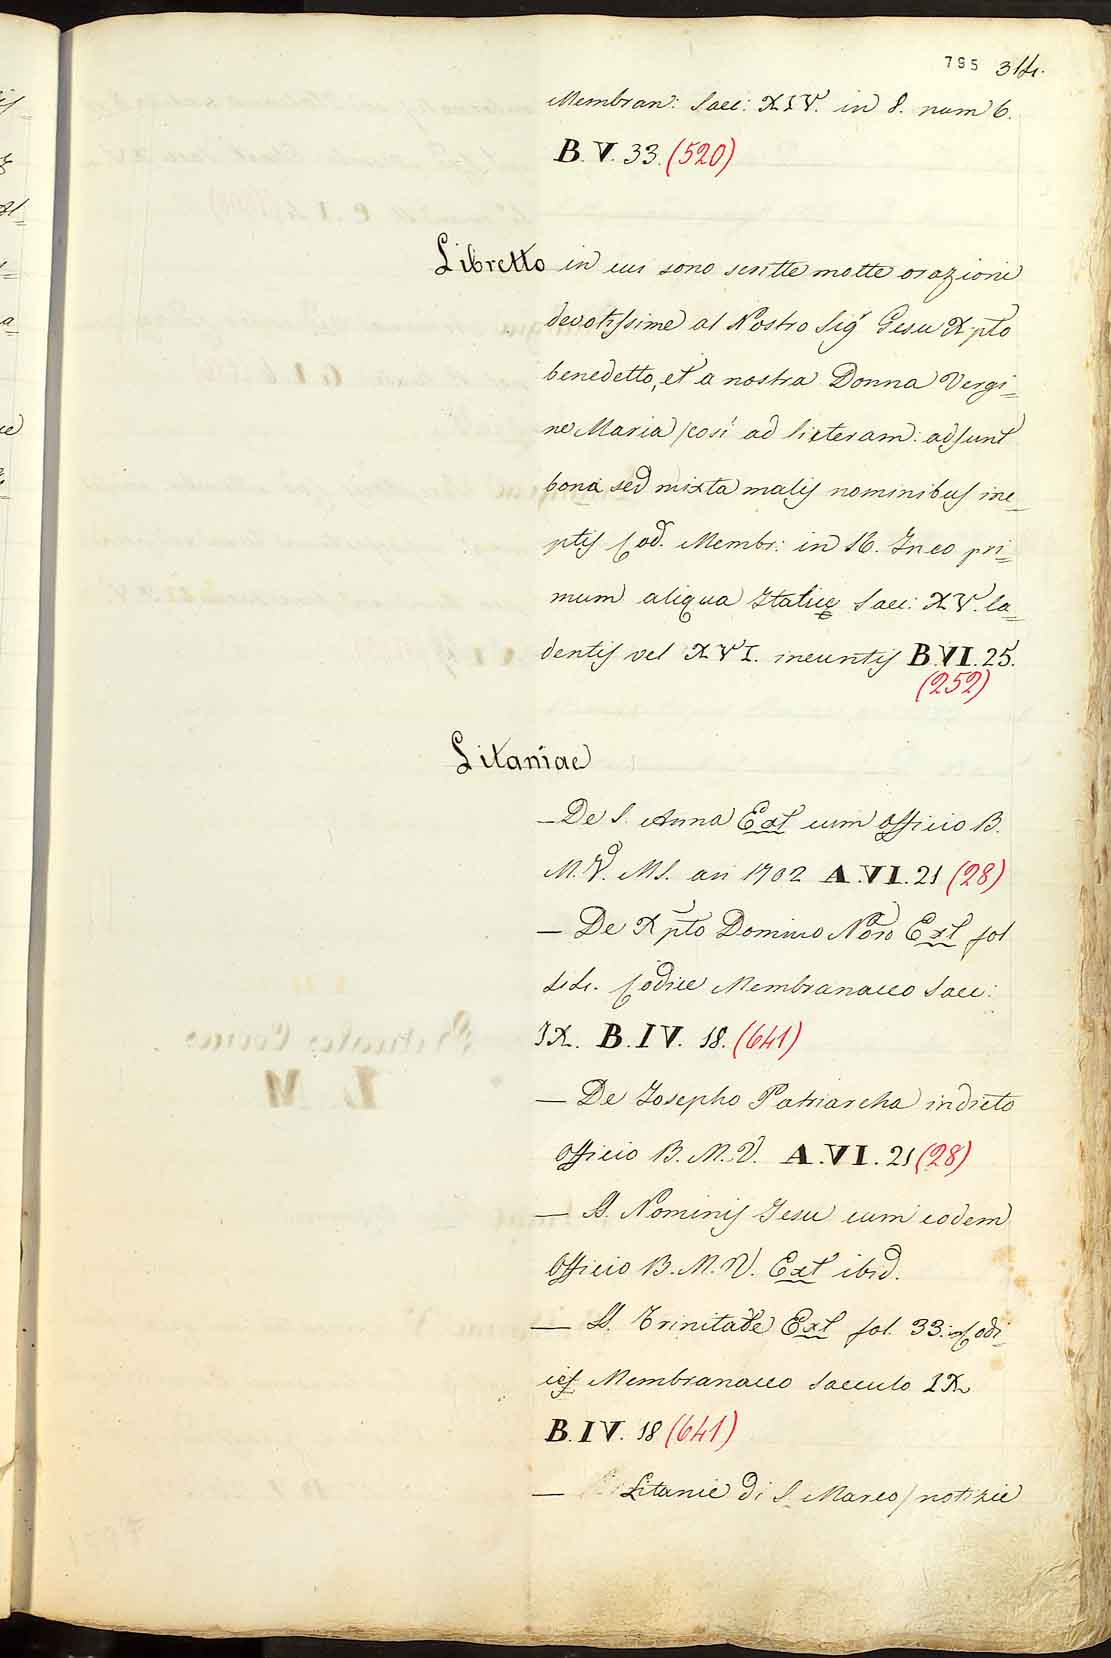 795 314.
Membran: Saec: XIV. in 8. num 6.
B. V. 33. (520)
Libretto in cui sono scritte molte orazioni
devotissime al Nostro Sig.r Gesu Xpto
benedetto, et a nostra Donna Vergi=
ne Maria /cosi ad litteram: adsunt
bona sed mixta malis nominibus ine=
ptis Cod. Membr: in 16. In eo pri=
mum aliqua Italice Saec: XV. la=
dentis vel XVI. ineuntis B. VI. 25.
(252)
Litaniae
—De S. Anna Ext cum Officio B.
M. V. MS. an 1702 A. VI. 21 (28)
— De Xpto Domino Nōro Ext fol
44. Codice Membranaceo Saec:
IX. B. IV. 18. (641)
— De Josepho Patriarcha in dicto
Officio B. M. V. A. VI. 21 (28)
— SS. Nominis Jesu cum eodem
Officio B. M. V. Ext ibid.
— SS. Trinitate Ext fol. 33. Codi=
ces Membranaceo Saeculo IX
B. IV. 18 (641)
— Litanie di S. Marco / notizie